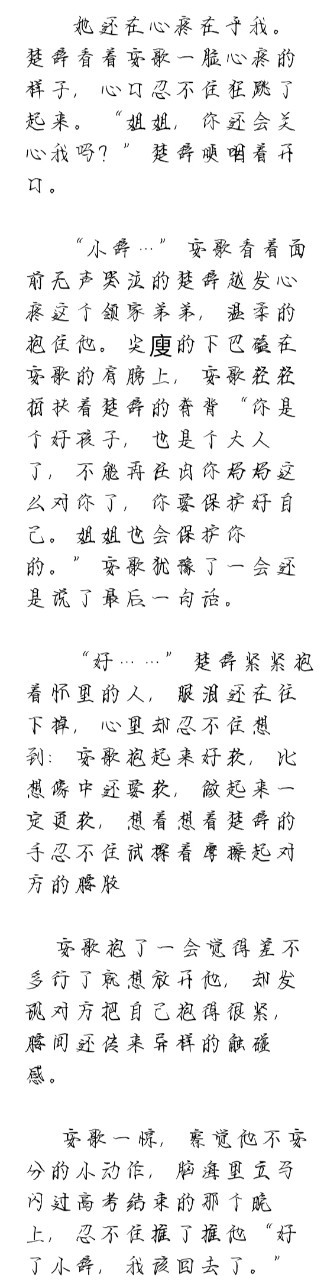 她还在心疼在乎我。
楚辞看着安歌一脸心疼的
样子，心口忍不住狂跳了
起来。“姐姐，你还会关
心我吗？”楚辞哽咽着开
口。
“小辞…”安歌看着面
前无声哭泣的楚辞越发心
疼这个领家弟弟，温柔的
抱住他。尖廋的下巴磕在
安歌的肩膀上，安歌轻轻
抚着楚辞的脊背“你是
个好孩子，也是个大人
了，不能再任由你妈妈这
么对你了，你要保护好自
己。姐姐也会保护你
的。”安歌犹豫了一会还
是说了最后一句话。
“好……”楚辞紧紧抱
着怀里的人，眼泪还在往
下掉，心里却忍不住想
到：安歌抱起来好软，比
想像中还要软，做起来一
定更软，想着想着楚辞的
手忍不住试探着摩擦起对
方的腰肢
安歌抱了一会觉得差不
多行了就想放开他，却发
现对方把自己抱得很紧，
腰间还传来异样的触碰
感。
安歌一惊，察觉他不安
分的小动作，脑海里立马
闪过高考结束的那个晚
上，忍不住推了推他“好
了小辞，我该回去了。”